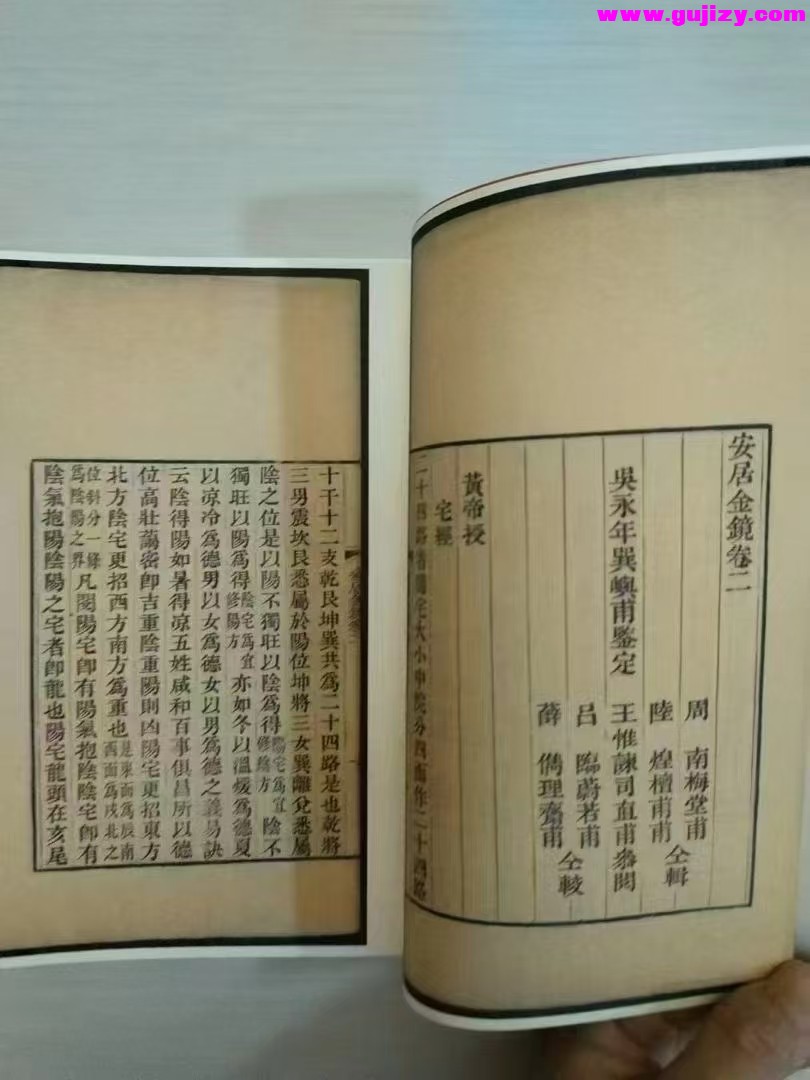 www.gujizy.com
安居金鏡卷二
周 南梅堂甫
陸 煌檀甫甫 仝輯
吳永年巽嶼甫鑒定
王惟諫司直甫叅閱
呂 臨蔚若甫
薛 儁理齋甫 仝較
黃帝授
宅經
二十四路者隨宅大小中院分四面作二十四路
十干十二支乾艮坤巽共為二十四路是也乾將
三男震坎艮悉屬於陽位坤將三女巽離兌悉屬
陰之位是以陽不獨旺以陰為得陽宅為宜修陰方陰不
獨旺以陽為得陰宅為宜修陽方亦如冬以溫暖為德夏
以凉冷為德男以女為德女以男為德之義易訣
云陰得陽如暑得凉五姓咸和百事俱昌所以德
位高壯藹密卽吉重陰重陽則凶陽宅更招東方
北方陰宅更招西方南方為重也是東面為辰南西面為戌北之
位斜分一條為陰陽之界凡閱陽宅卽有陽氣抱陰陰宅卽有
陰氣抱陽陰陽之宅者卽龍也陽宅龍頭在亥尾